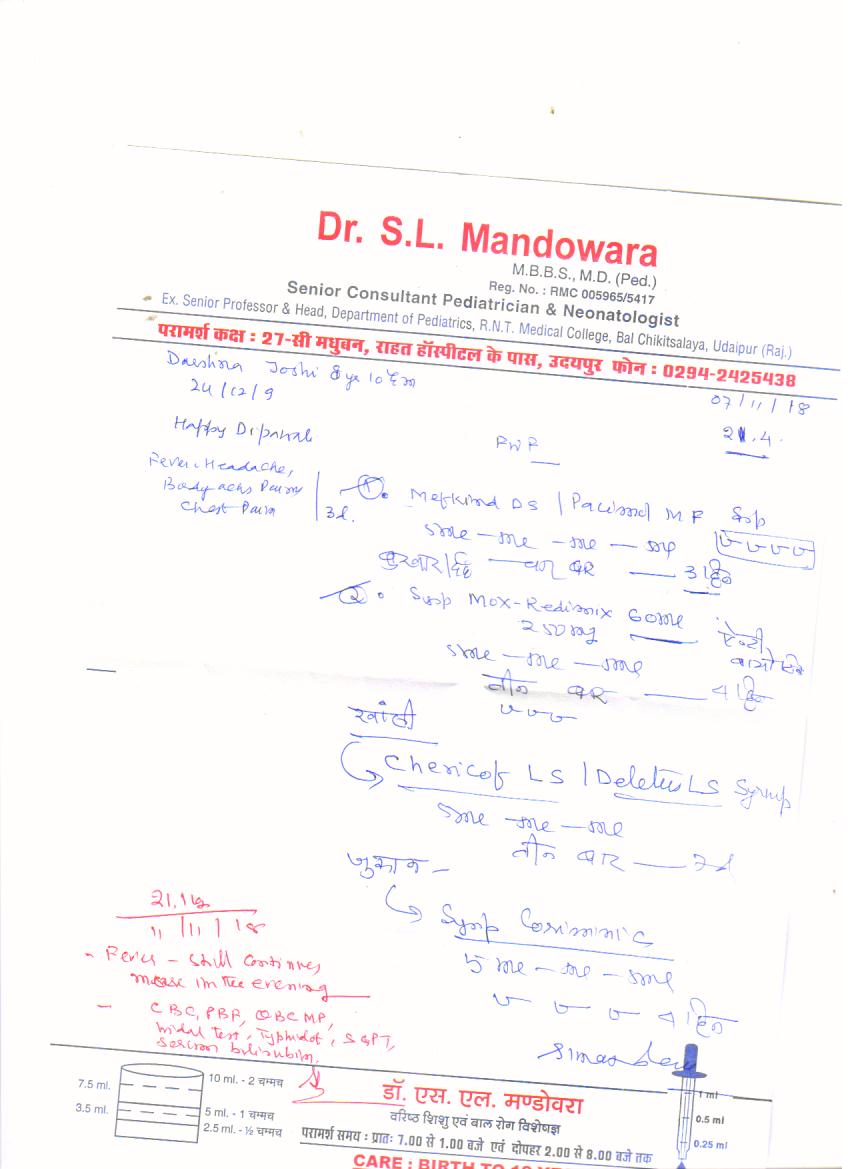 Dr. S.L. Mandowara
M.B.B.S., M.D. (Ped.)
Reg. No. : RMC 005965/5417
Senior Consultant Pediatrician & Neonatologist
Ex. Senior Professor & Head, Department of Pediatrics, R.N.T. Medical College, Bal Chikitsalaya, Udaipur (Raj.)
परामर्श कक्ष : 27-सी मधुबन, राहत हॉस्पीटल के पास, उदयपुर फोन : 0294-2425438
Joshi 8 yr 10
24/12/9
07/11/18
Happy
21.4
Fever. Headache,
Body ache
Chest Pain
3d.
1. Mefkind DS / MF
5ml - ml - ml - ml
बुखार/दर्द चार बार — 3 दिन
2. Syrup Mox-Redimix 60ml
250mg
एन्टी
5ml - ml - ml
तीन बार — 4 दिन
खांसी
Chericof LS / Deletus LS Syrup
5ml - ml - ml
तीन बार —
जुकाम -
Syrup
5 ml - ml - ml
4 दिन
11/11/18
- Fever - still continues,
more in the evening
- CBC, PBF, QBC MP,
Widal Test, Typhidot, SGPT,
Serum bilirubin,
7.5 ml.
3.5 ml.
10 ml. - 2 चम्मच
5 ml. - 1 चम्मच
2.5 ml. - ½ चम्मच
डॉ. एस. एल. मण्डोवरा
वरिष्ठ शिशु एवं बाल रोग विशेषज्ञ
परामर्श समय : प्रातः 7.00 से 1.00 बजे एवं दोपहर 2.00 से 8.00 बजे तक
1 ml
0.5 ml
0.25 ml
CARE : BIRTH TO